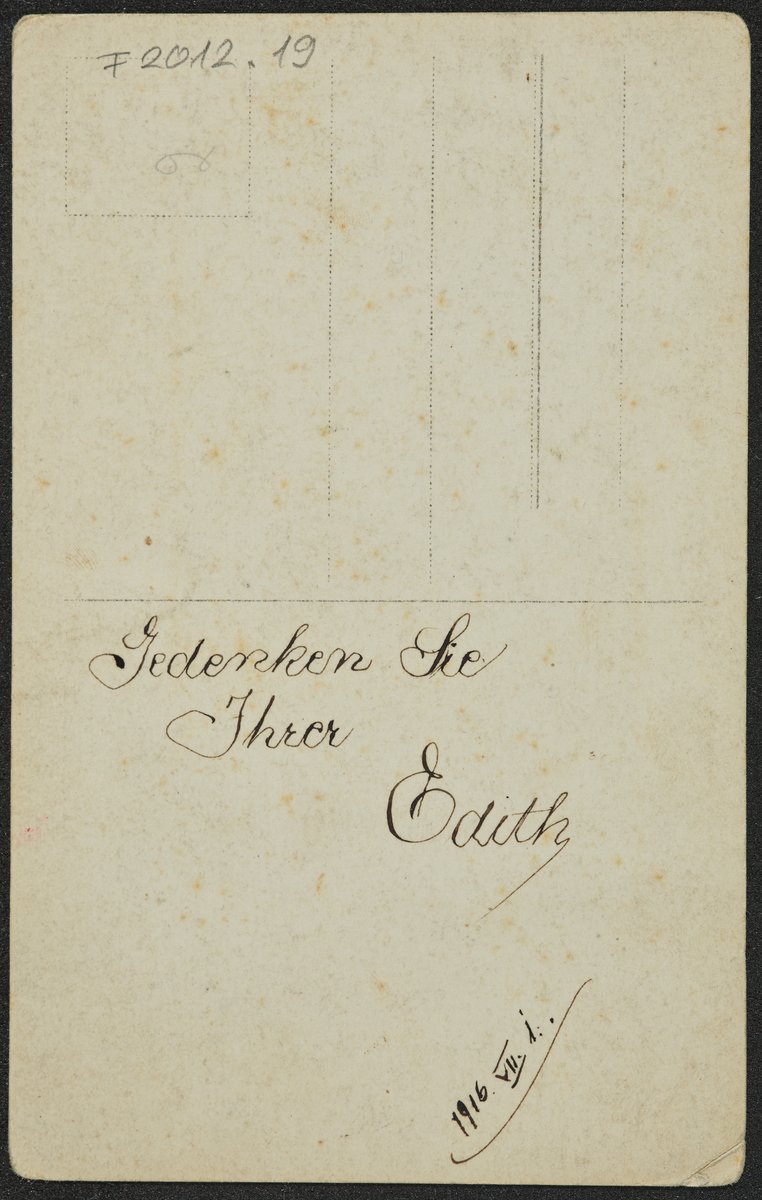 F 2012.19
Gedenken Sie
Ihrer
Edith
1916. VII. 1.